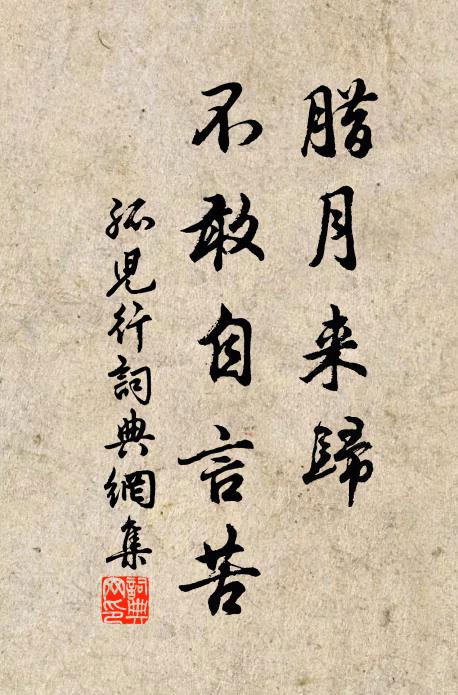 腊月来歸
不敢自言苦
孤児行詞典網集
詞典
网印